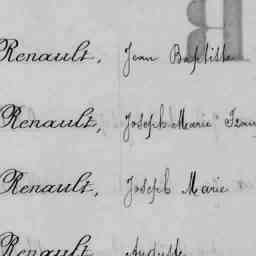 Renault, Jean Baptiste
Renault, Joseph Marie
Renault, Joseph Marie
Renault, Auguste